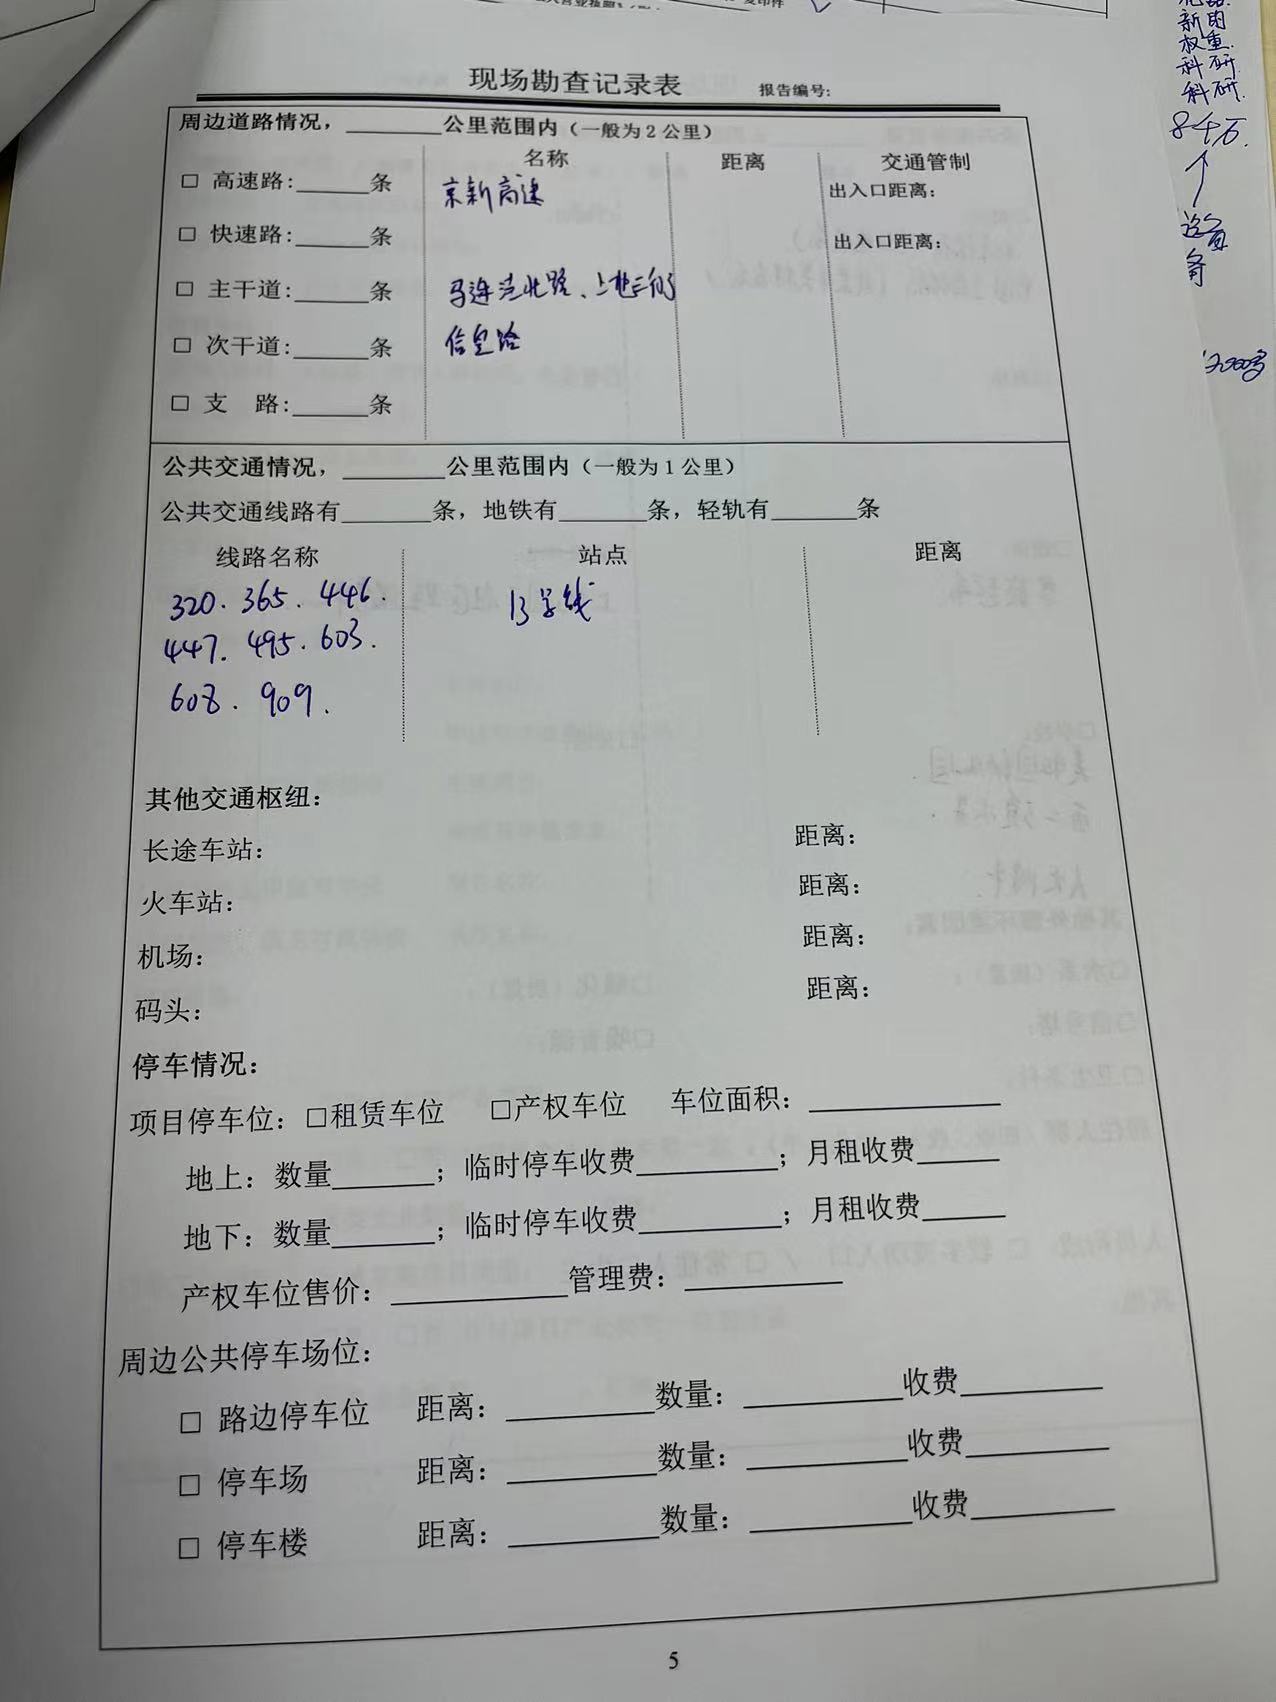 现场勘查记录表 报告编号:
周边道路情况，______公里范围内（一般为2公里）
名称 距离 交通管制
□ 高速路:______条 京新高速 出入口距离：
□ 快速路:______条 出入口距离：
□ 主干道:______条 马连洼北路、上地三街
□ 次干道:______条 信息路
□ 支 路:______条
公共交通情况，______公里范围内（一般为1公里）
公共交通线路有______条，地铁有______条，轻轨有______条
线路名称 站点 距离
320. 365. 446. 13号线
447. 495. 603.
608. 909.
其他交通枢纽：
长途车站： 距离：
火车站： 距离：
机场： 距离：
码头： 距离：
停车情况：
项目停车位：□租赁车位 □产权车位 车位面积：______
地上：数量______；临时停车收费______；月租收费______
地下：数量______；临时停车收费______；月租收费______
产权车位售价：______管理费：______
周边公共停车场位：
□ 路边停车位 距离：______数量：______收费______
□ 停车场 距离：______数量：______收费______
□ 停车楼 距离：______数量：______收费______
5
新的
权重
科研
科研.
84万.
设备